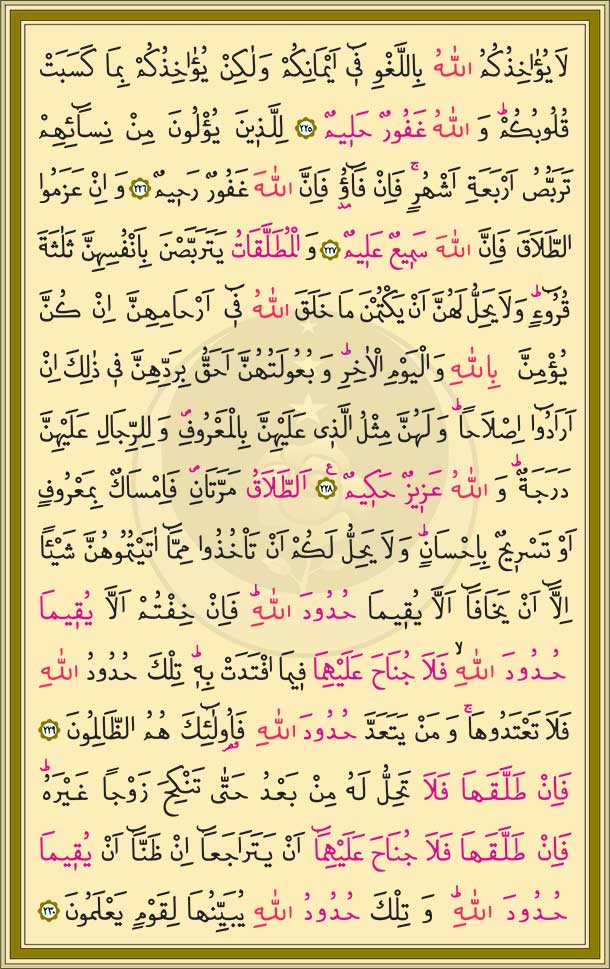 لَا يُؤَاخِذُكُمُ اللّٰهُ بِاللَّغْوِ فٖٓي اَيْمَانِكُمْ وَلٰكِنْ يُؤَاخِذُكُمْ بِمَا كَسَبَتْ
قُلُوبُكُمْؕ وَ اللّٰهُ غَفُورٌ حَلٖيمٌ ﴿٢٢٥﴾ لِلَّذٖينَ يُؤْلُونَ مِنْ نِسَٓائِهِمْ
تَرَبُّصُ اَرْبَعَةِ اَشْهُرٍۚ فَاِنْ فَٓاؤُ۫ فَاِنَّ اللّٰهَ غَفُورٌ رَحٖيمٌ ﴿٢٢٦﴾ وَ اِنْ عَزَمُوا
الطَّلَاقَ فَاِنَّ اللّٰهَ سَمٖيعٌ عَلٖيمٌ ﴿٢٢٧﴾ وَ الْمُطَلَّقَاتُ يَتَرَبَّصْنَ بِاَنْفُسِهِنَّ ثَلٰثَةَ
قُرُٓوءٍؕ وَلَا يَحِلُّ لَهُنَّ اَنْ يَكْتُمْنَ مَا خَلَقَ اللّٰهُ فٖٓي اَرْحَامِهِنَّ اِنْ كُنَّ
يُؤْمِنَّ بِاللّٰهِ وَالْيَوْمِ الْاٰخِرِؕ وَ بُعُولَتُهُنَّ اَحَقُّ بِرَدِّهِنَّ فٖي ذٰلِكَ اِنْ
اَرَادُٓوا اِصْلَاحًاؕ وَ لَهُنَّ مِثْلُ الَّذٖي عَلَيْهِنَّ بِالْمَعْرُوفِࣕ وَ لِلرِّجَالِ عَلَيْهِنَّ
دَرَجَةٌؕ وَ اللّٰهُ عَزٖيزٌ حَكٖيمٌ ﴿٢٢٨﴾ ع اَلطَّلَاقُ مَرَّتَانِࣕ فَاِمْسَاكٌ بِمَعْرُوفٍ
اَوْ تَسْرٖيحٌ بِاِحْسَانٍؕ وَ لَا يَحِلُّ لَكُمْ اَنْ تَأْخُذُوا مِمَّٓا اٰتَيْتُمُوهُنَّ شَيْئًا
اِلَّٓا اَنْ يَخَافَٓا اَلَّا يُقٖيمَا حُدُودَ اللّٰهِؕ فَاِنْ خِفْتُمْ اَلَّا يُقٖيمَا
حُدُودَ اللّٰهِۙ فَلَا جُنَاحَ عَلَيْهِمَا فٖيمَا افْتَدَتْ بِهٖؕ تِلْكَ حُدُودُ اللّٰهِ
فَلَا تَعْتَدُوهَاۚ وَ مَنْ يَتَعَدَّ حُدُودَ اللّٰهِ فَاُو۬لٰٓئِكَ هُمُ الظَّالِمُونَ ﴿٢٢٩﴾
فَاِنْ طَلَّقَهَا فَلَا تَحِلُّ لَهُ مِنْ بَعْدُ حَتّٰى تَنْكِحَ زَوْجًا غَيْرَهُؕ
فَاِنْ طَلَّقَهَا فَلَا جُنَاحَ عَلَيْهِمَٓا اَنْ يَتَرَاجَعَٓا اِنْ ظَنَّٓا اَنْ يُقٖيمَا
حُدُودَ اللّٰهِؕ وَ تِلْكَ حُدُودُ اللّٰهِ يُبَيِّنُهَا لِقَوْمٍ يَعْلَمُونَ ﴿٢٣٠﴾